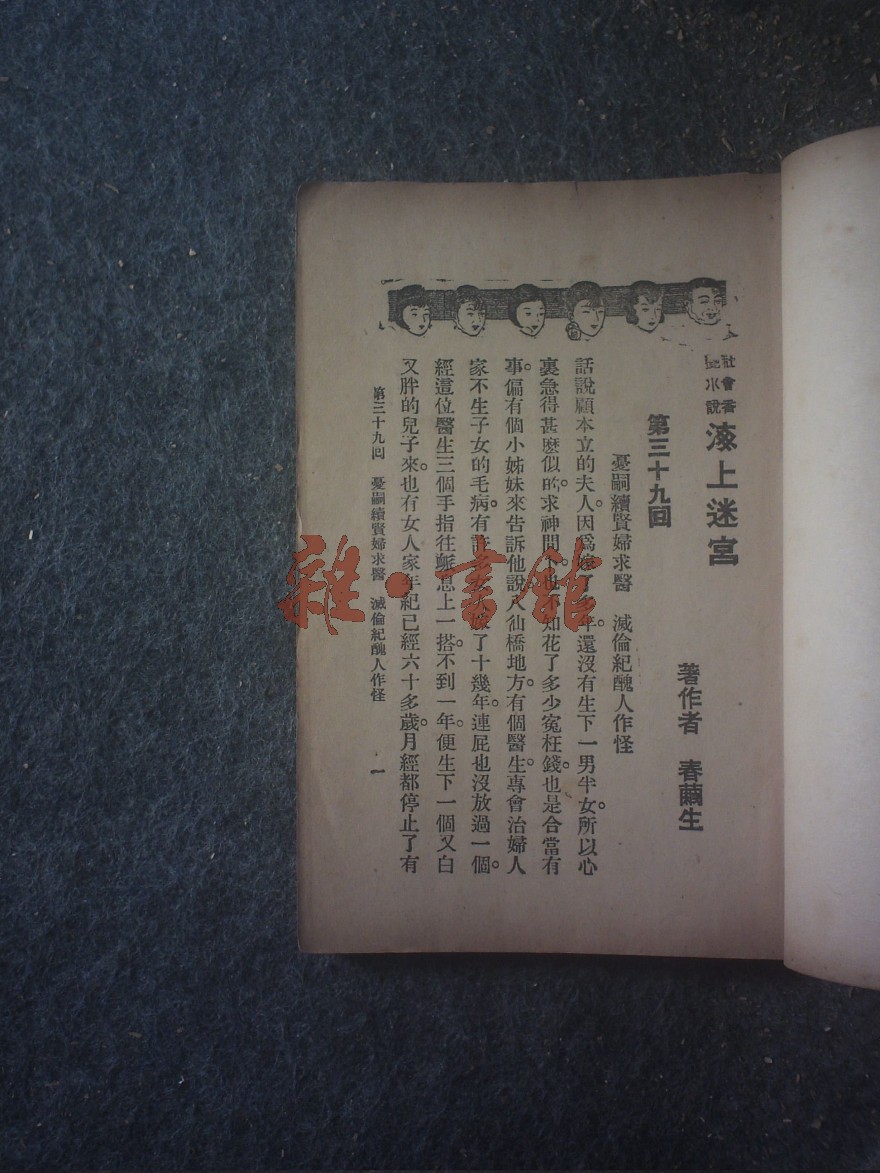 社會香艷小說
海上迷宮
著作者 春繭生
第三十九回
憂嗣續賢婦求醫 滅倫紀醜人作怪
話說顧本立的夫人。因爲年還沒有生下一男半女。所以心
裏急得甚麽似的。求神問卜。也不知花了多少寃枉錢。也是合當有
事。偏有個小姊妹來告訴他說。八仙橋地方。有個醫生。專會治婦人
家不生子女的毛病。有了十幾年。連屁也沒放過一個。
經這位醫生三個手指往脈息上一搭。不到一年。便生下一個又白
又胖的兒子來。也有女人家年紀已經六十多歲。月經都停止了。有
第三十九回 憂嗣續賢婦求醫 滅倫紀醜人作怪 一
雜·書館